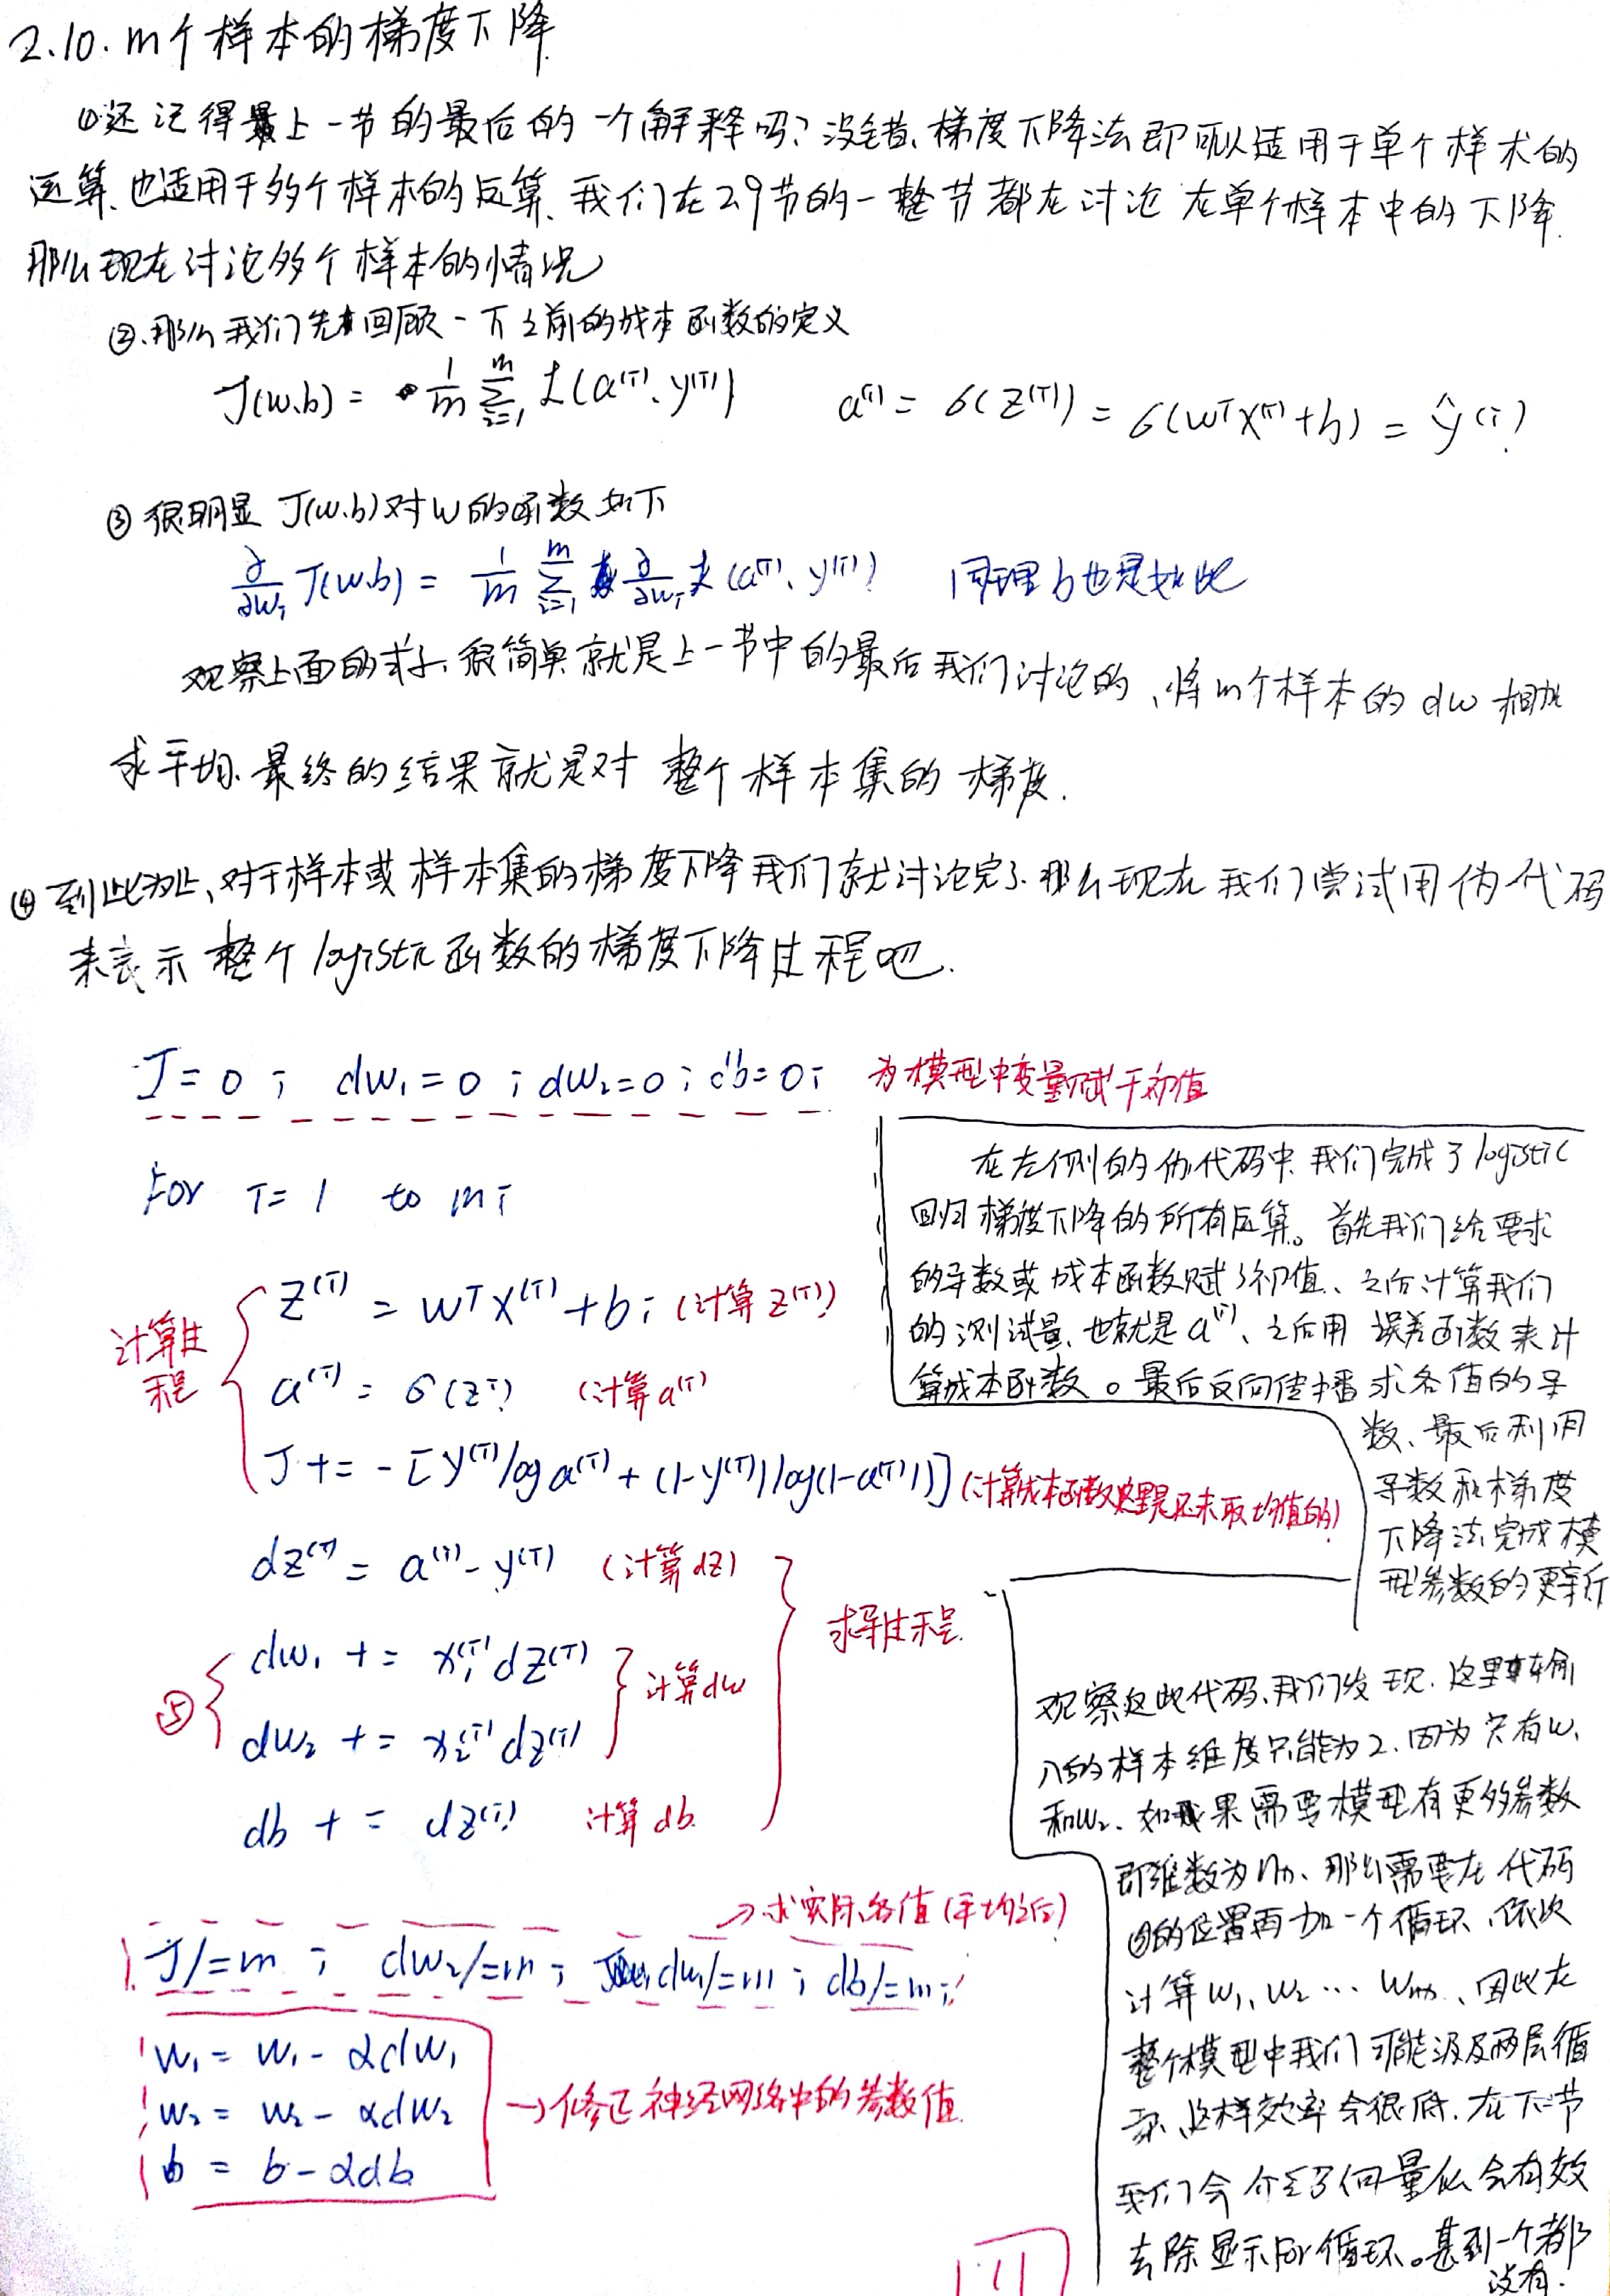 2.10. m个样本的梯度下降
①还记得最上一节的最后的一个解释吗?没错,梯度下降法即可以适用于单个样本的
运算,也适用于多个样本的运算,我们在2.9节的一整节都在讨论在单个样本中的下降.
那么现在讨论多个样本的情况
②.那么我们先来回顾一下之前的成本函数的定义
J(w,b) = 1/m Σ_{i=1}^{m} L(a^(i), y^(i))    a^(i) = σ(z^(i)) = σ(w^T x^(i) + b) = ŷ^(i)
③很明显 J(w,b)对w的函数如下
∂/∂w₁ J(w,b) = 1/m Σ_{i=1}^{m} ∂/∂w₁ L(a^(i), y^(i))    同理b也是如此
观察上面的式子,很简单就是上一节中的最后我们讨论的,将m个样本的dw相加
求平均.最终的结果就是对整个样本集的梯度.
④到此为止,对于样本或样本集的梯度下降我们就讨论完了.那么现在我们尝试用伪代码
来表示整个logistic函数的梯度下降过程吧.
J = 0 ; dw₁ = 0 ; dw₂ = 0 ; db = 0 ; 为模型中变量赋予初值
For i = 1 to m ;
计算过程
z^(i) = w^T x^(i) + b ; (计算z^(i))
a^(i) = σ(z^i) (计算a^(i)
J += -[y^(i) log a^(i) + (1-y^(i)) log(1-a^(i))] (计算成本函数这里是还未取均值的)
dz^(i) = a^(i) - y^(i) (计算dz)
求导过程.
⑤
dw₁ += x₁^(i) dz^(i)
dw₂ += x₂^(i) dz^(i)
计算dw
db += dz^(i) 计算db.
→求实际各值(平均之后)
J/=m ; dw₂/=m ; dw₁/=m ; db/=m ;
w₁ = w₁ - αdw₁
w₂ = w₂ - αdw₂
b = b - αdb
→修正神经网络中的参数值
在左侧的伪代码中,我们完成了logistic
回归梯度下降的所有运算。首先我们给要求
的导数或成本函数赋了初值、之后计算我们
的测试量,也就是a^(i)、之后用误差函数来计
算成本函数。最后反向传播求各值的导
数、最后利用
导数和梯度
下降法完成模
型参数的更新
观察这些代码,我们发现.这里输
入的样本维度只能为2.因为只有w₁
和w₂.如果需要模型有更多参数
即维数为n、那么需要在代码
⑤的位置再加一个循环,依次
计算w₁, w₂ … 、因此在
整个模型中我们可能涉及两层循
环,这样效率会很低.在下一节
我们会介绍了向量化会有效
去除显示for循环。甚到一个都
没有.
11